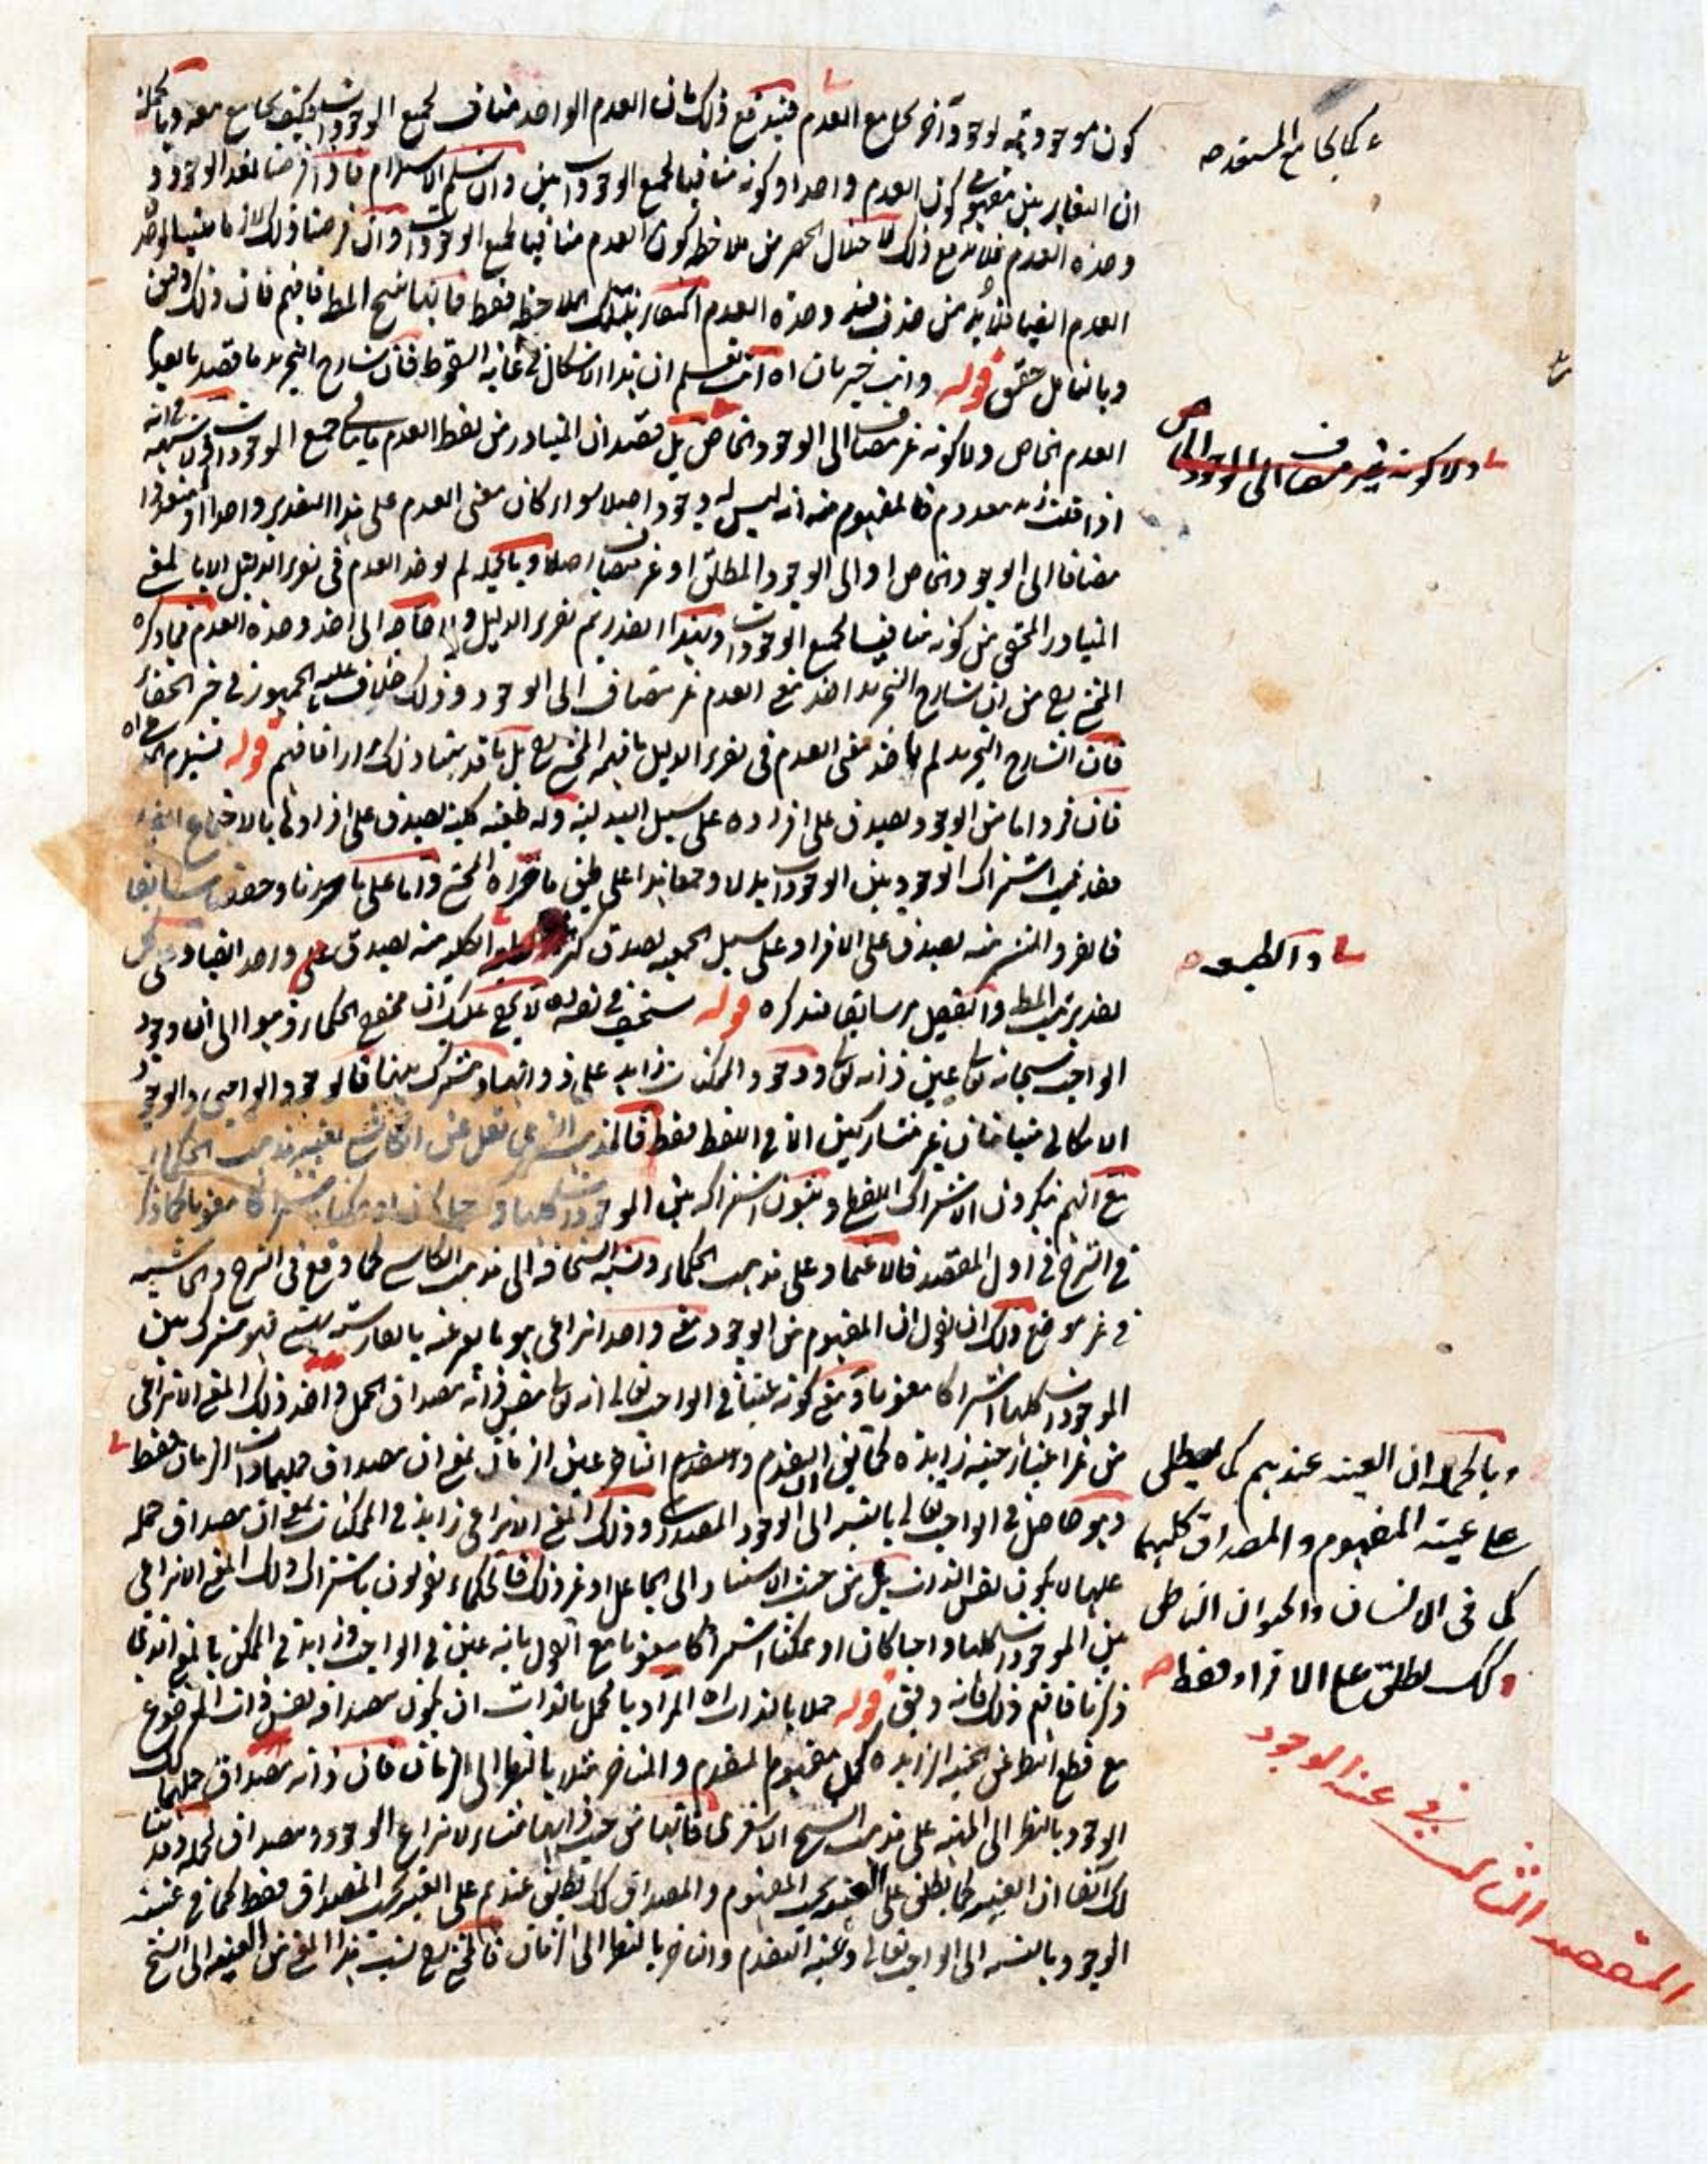 كون موجود بوجود آخر يجامع العدم فيندفع ذلك بان العدم الواحد مناف لجميع الوجودات فكيف يجامع معه وبالجملة
ان التغاير بين مفهومي كون العدم واحدا وكونه منافيا لجميع الوجودات بين وان سلم الاستلزام فاذا فرضنا تعدد الوجود و
وحدة العدم فلابد مع ذلك لاختلال الحصر من ملاحظة كون العدم منافيا لجميع الوجودات وان فرضنا ذلك
العدم ايضا فلابد من حذف قيد وحدة العدم اكتفاء بتلك الملاحظة فقط فانها تنتج المط فافهم فان ذلك دقيق
وبالتامل حقيق قوله وانت خبير بان اه انت تعلم ان هذا الاشكال في غاية السقوط فان شارح التجريد ما قصد بالعدم
العدم الخاص ولا كونه غير مضاف الى الوجود الخاص بل قصد ان المتبادر من لفظ العدم ما ينافي جميع الوجودات
اذا قلت زيد معدوم فالمفهوم منه انه ليس له وجود اصلا سواء كان معنى العدم على هذا التقدير واحدا او متعددا
مضافا الى الوجود الخاص او الى الوجود المطلق او غير مضاف اصلا وبالجملة لم يوخذ العدم في تقرير الدليل الا بالمعنى
المتبادر المحقق من كونه منافيا لجميع الوجودات وبهذا القدر يتم تقرير الدليل ولا حاجة الى اخذ وحدة العدم فما ذكره
المحشي رح من ان شارح التجريد اخذ معنى العدم غير مضاف الى الوجود وذلك خلاف ما عليه الجمهور في حيز الخفاء
فان الشارح التجريد لم ياخذ معنى العدم في تقرير الدليل ما فهمه المحشي رح بل ما قد بينا ذلك مرارا فافهم قوله
فان فردا ما من الوجود يصدق على افراده على سبيل البدلية وله طبيعة كلية تصدق على افرادها بالاجتماع ايضا
فقد ثبت اشتراك الوجود بين الوجودات بدلا وجمعا هذا على طبق ما قرره المحشي واما على ما حررنا وحققنا سابقا
فالفرد المنتشر منه يصدق على الافراد على سبيل الجمعية تصدق الكلية منه يصدق على واحد ايضا وعلى كل
تقدير يثبت المط والتفصيل مر سابقا فتذكره قوله سخيف في نفسه لا يخفى عليك ان محققي الحكماء ذهبوا الى ان وجود
الواجب سبحانه تعالى عين ذاته تعالى ووجود الممكنات زايد على ذواتها ومشترك بينها فالوجود الواجبي والوجود
الامكاني متباينان غير متشاركين الا في اللفظ فقط فالمذهب الذي نقل عن الكاشي بعينه مذهب الحكماء
مع انهم ينكرون الاشتراك اللفظي ويثبتون اشتراكه بين الموجودات كلها واجبا كان او ممكنا اشتراكا معنويا كما ذكر
في الشرح في اول المقصد فالاعتماد على مذهب الحكماء ونسبة السخافة الى مذهب الكاشي كما وقع في الشرح والحاشية
في غير موضع ولك ان تقول ان المفهوم من الوجود معنى واحد انتزاعي هو ما يعبر عنه بالفارسية بهستي فهو مشترك بين
الموجودات كلها اشتراكا معنويا ومعنى كونه عينا في الواجب تعالى انه تعالى بنفس ذاته مصداق لحمل واخذ ذلك المعنى الانتزاعي
من غير اعتبار حيثية زايدة كما يقال التقدم والتاخر عين الزمان بمعنى ان مصداق حملهما ذات الزمان فقط
وهو حاصل في الواجب تعالى بالنسبة الى الوجود المصدري وذلك المعنى الانتزاعي زايد في الممكنات بمعنى ان مصداق حمله
عليها لا يكون نفس الذات بل من حيث الاستناد الى الجاعل او غير ذلك فالحكماء يقولون باشتراك ذلك المعنى الانتزاعي
بين الموجودات كلها واجبا كان او ممكنا اشتراكا معنويا مع القول بانه عين في الواجب وزايد في الممكن بالمعنى الذي
ذكرنا فافهم ذلك فانه دقيق قوله حملا بالذات اه المراد بالحمل بالذات ان يكون مصداقه نفس ذات الموضوع
مع قطع النظر عن الحيثية الزايدة كحمل مفهوم المتقدم والمتاخر مثلا بالنظر الى الزمان فان ذاته مصداق حملهما كك
الوجود بالنظر الى الماهية على مذهب الشيخ الاشعري فانها من حيث ذاتها منشاء لانتزاع الوجود ومصداق لحمله وقد بينا
لك آنفا ان العينية كما يطلق على العينية بحسب المفهوم والمصداق كك يطلق عندهم على العينية بحسب المصداق فقط كما في عينية
الوجود بالنسبة الى الواجب تعالى وعينية التقدم والتاخر بالنظر الى الزمان فالمحشي رح نسبت هذا المعنى من العينية الى الشيخ
ولا كونه غير مضاف الى الوجود الخاص
والطبيعة
وبالجملة ان العينية عندهم كما يطلق
على عينية المفهوم والمصداق كليهما
كما في الانسان والحيوان الناطق
كك يطلق على الافراد فقط
المقصد الثالث في عينه الوجود